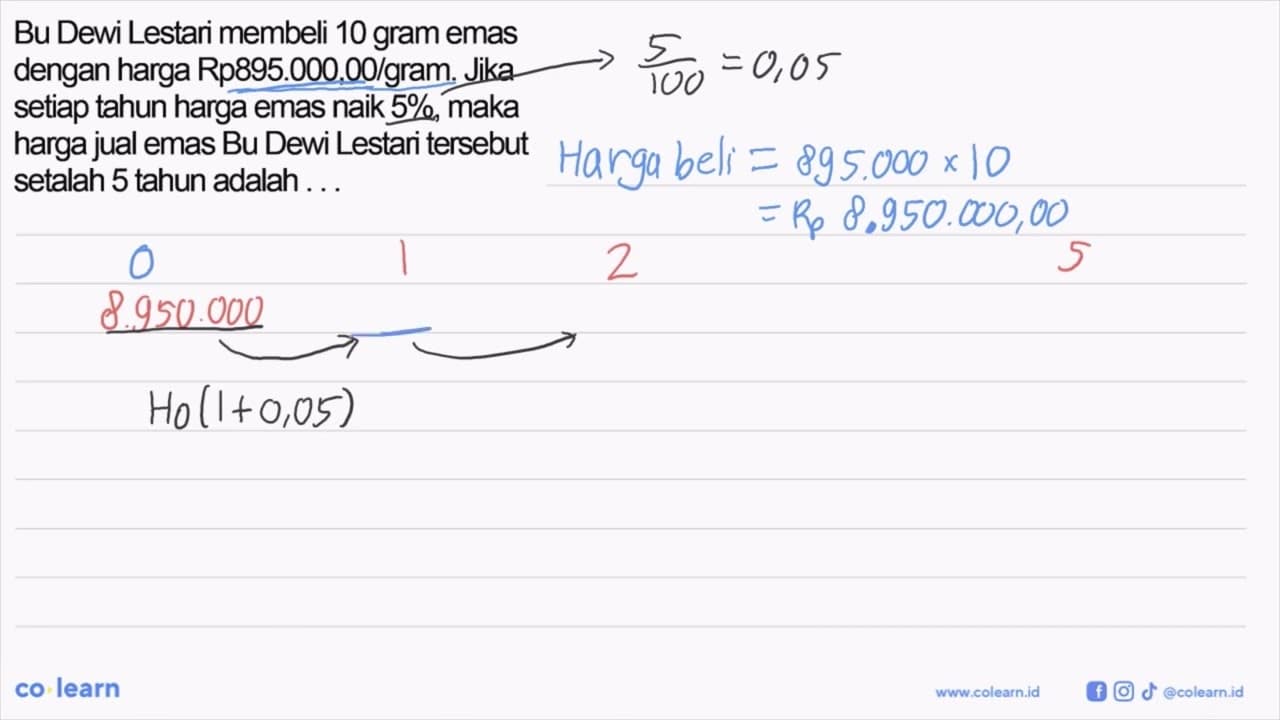 Bu Dewi Lestari membeli 10 gram emas
dengan harga Rp895.000,00/gram. Jika
setiap tahun harga emas naik 5%, maka
harga jual emas Bu Dewi Lestari tersebut
setalah 5 tahun adalah . . .
5/100 = 0,05
Harga beli = 895.000 × 10
= Rp 8.950.000,00
0 1 2 5
8.950.000
H0(1+0,05)
co learn
www.colearn.id @colearn.id